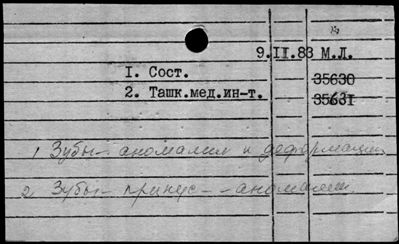 9.II.83 М.Л.
I. Сост. 35630
2. Ташк.мед.ин-т. 35631
1 Зубы – аномалии и деформации
2 Зубы – прикус – аномалии.